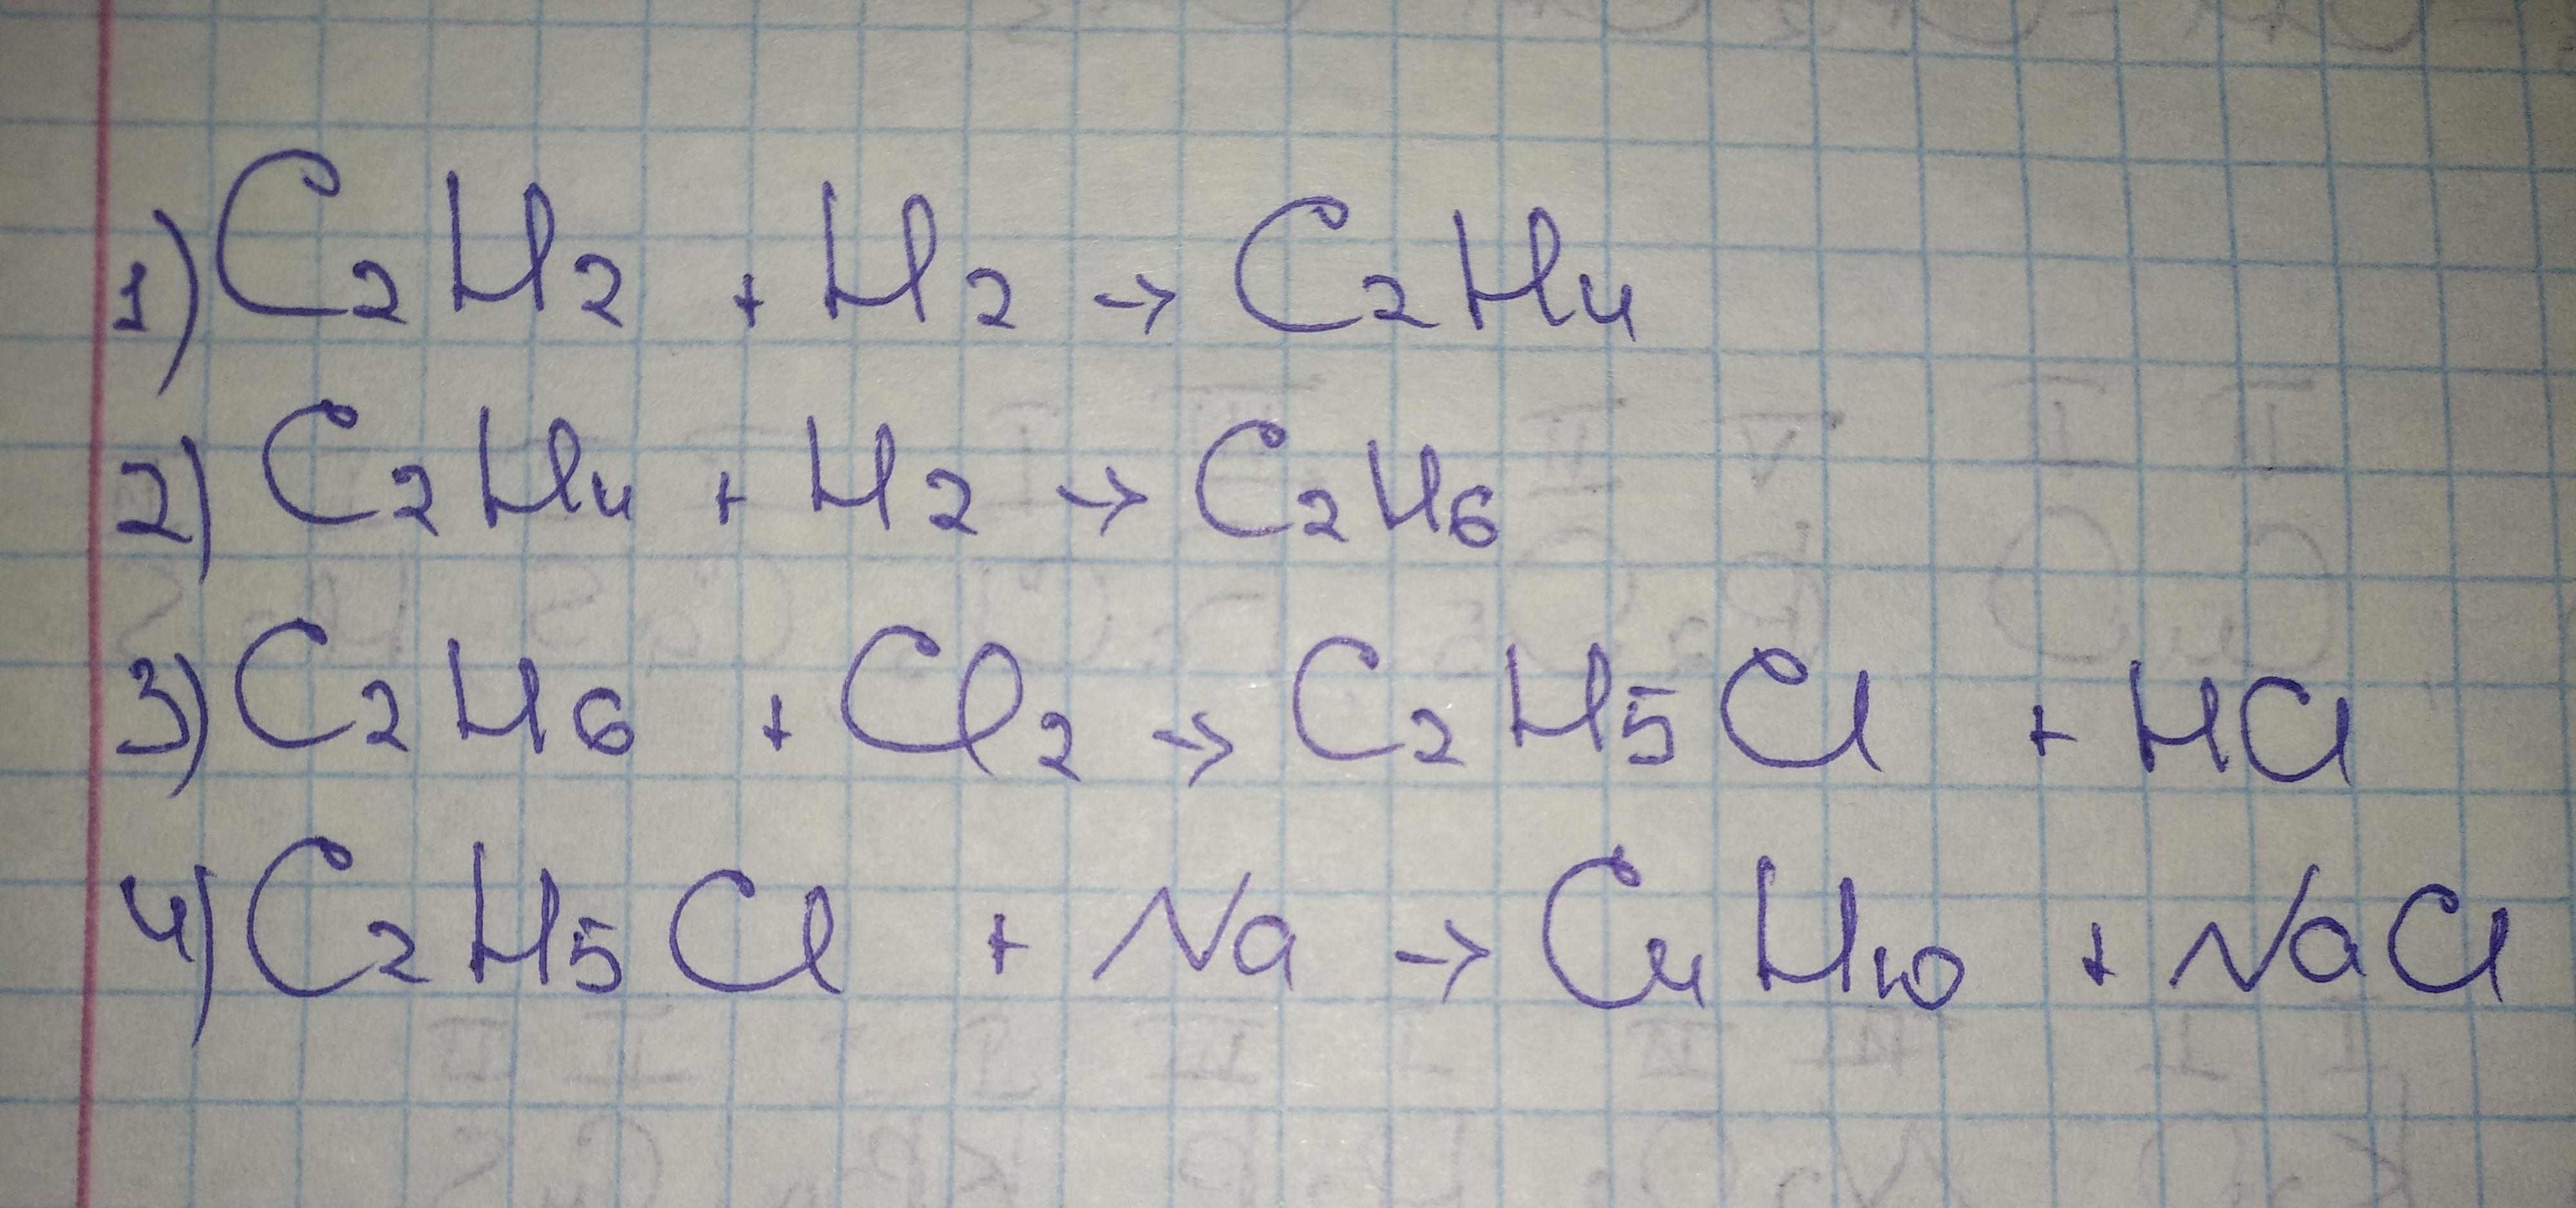 1) C₂H₂ + H₂ → C₂H₄
2) C₂H₄ + H₂ → C₂H₆
3) C₂H₆ + Cl₂ → C₂H₅Cl + HCl
4) C₂H₅Cl + Na → C₄H₁₀ + NaCl